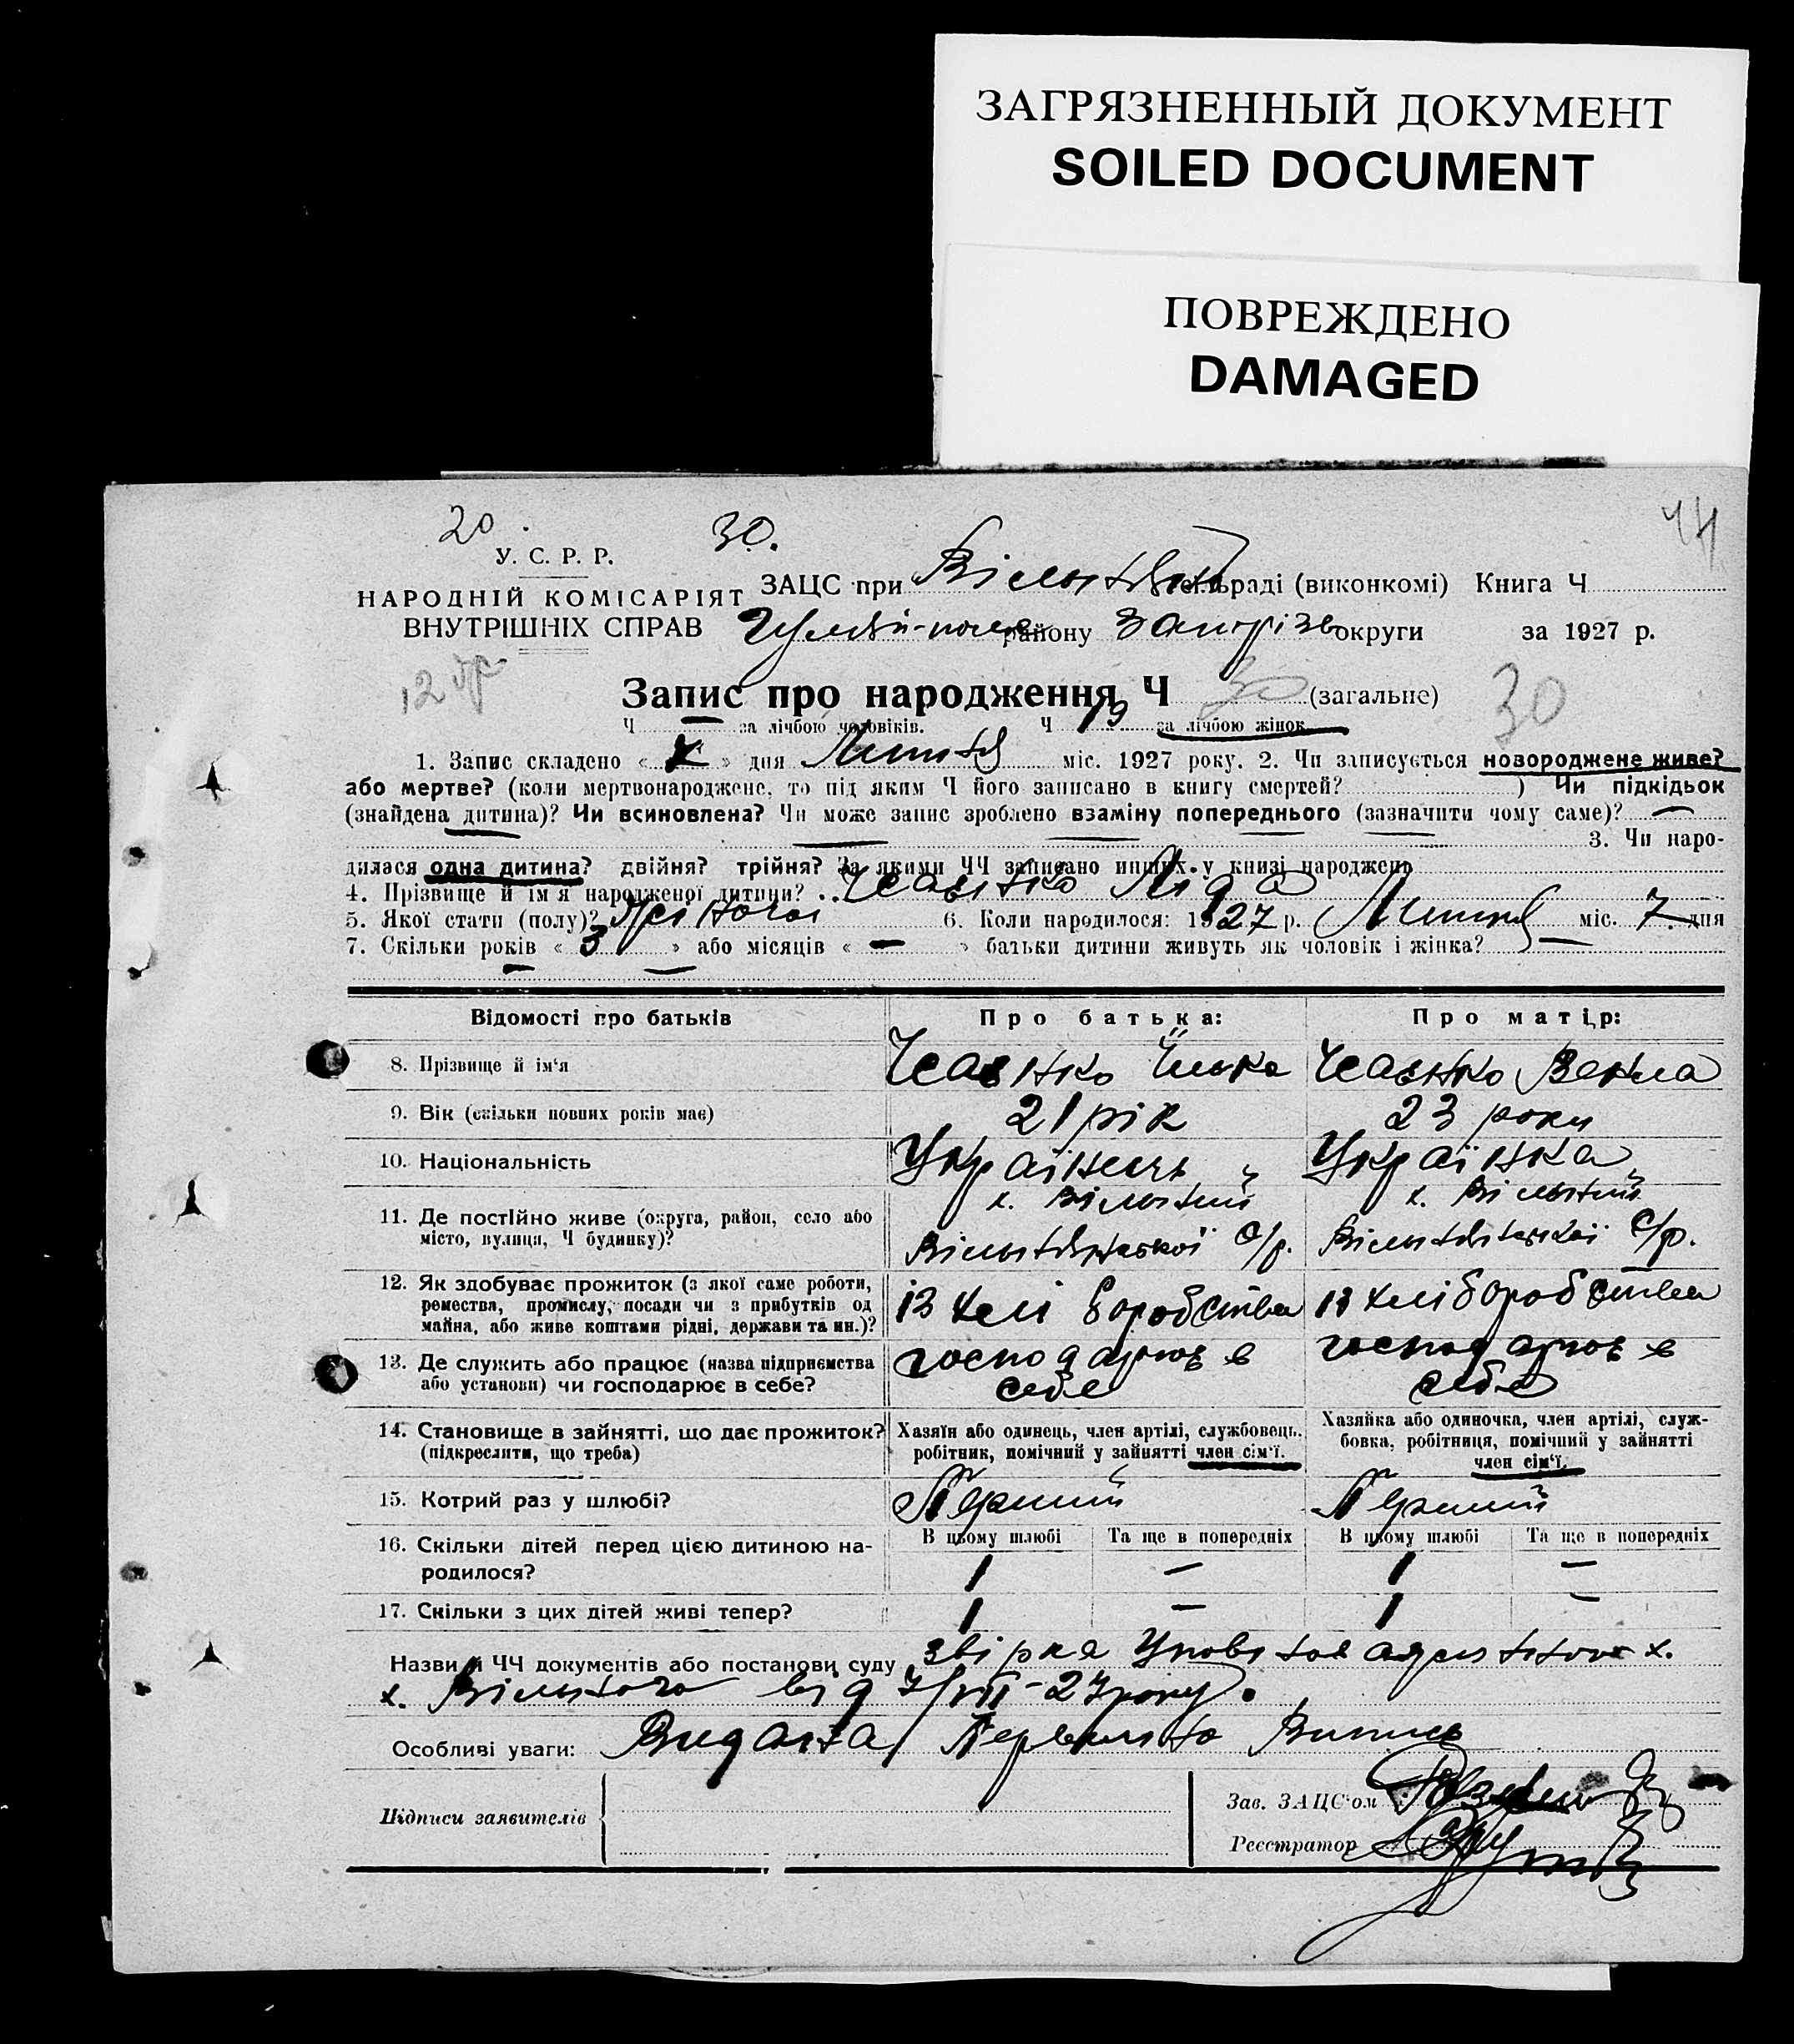 ЗАГРЯЗНЕННЫЙ ДОКУМЕНТ
SOILED DOCUMENT
ПОВРЕЖДЕНО
DAMAGED
20. 30.
У. С. Р. Р.
НАРОДНІЙ КОМІСАРІЯТ
ВНУТРІШНІХ СПРАВ
ЗАЦС при сільраді (виконкомі) Книга Ч
Гуляй-поле району Запоріж округи за 1927 р.
Запис про народження Ч 30 (загальне) 30
Ч — за лічбою чоловіків. Ч 13 за лічбою жінок
1. Запис складено « » дня Липня міс. 1927 року. 2. Чи записується новороджене живе?
або мертве? (коли мертвонароджене, то під яким Ч його записано в книгу смертей? ) Чи підкідьок
(знайдена дитина)? Чи всиновлена? Чи може запис зроблено взаміну попереднього (зазначити чому саме)? —
3. Чи наро-
дилася одна дитина? двійня? трійня? За якими ЧЧ записано инших у книзі народжень
4. Прізвище й ім'я народженої дитини? Ліда
5. Якої стати (полу)? 6. Коли народилося: 1927 р. Липня міс. 7 дня
7. Скільки років « 3 » або місяців « — » батьки дитини живуть як чоловік і жінка? —
Відомості про батьків Про батька: Про матір:
8. Прізвище й ім'я Векла
9. Вік (скільки повних років має) 21 рік 23 роки
10. Національність Українець Українка
11. Де постійно живе (округа, район, село або
місто, вулиця, Ч будинку)?
х. Вільний
с/р.
х. Вільний
с/р.
12. Як здобуває прожиток (з якої саме роботи,
ремества, промислу, посади чи з прибутків од
майна, або живе коштами рідні, держави та ин.)?
із хліборобства із хліборобства
13. Де служить або працює (назва підприємства
або установи) чи господарює в себе?
господарює в
себе
господарює в
себе
14. Становище в зайнятті, що дає прожиток?
(підкреслити, що треба)
Хазяїн або одинець, член артілі, службовець.
робітник, помічний у зайнятті член сім'ї.
Хазяйка або одиночка, член артілі, служ-
бовка, робітниця, помічний у зайнятті
член сім'ї.
15. Котрий раз у шлюбі? Перший Перший
16. Скільки дітей перед цією дитиною на-
родилося?
В цьому шлюбі Та ще в попередніх В цьому шлюбі Та ще в попередніх
1 — 1 —
17. Скільки з цих дітей живі тепер? 1 — 1 —
Назви й ЧЧ документів або постанови суду х.
х. Вільного від 7/VII-27 року.
Особливі уваги: Видана Виписъ
Підписи заявителів
Зав. ЗАЦС'ом
Реєстратор